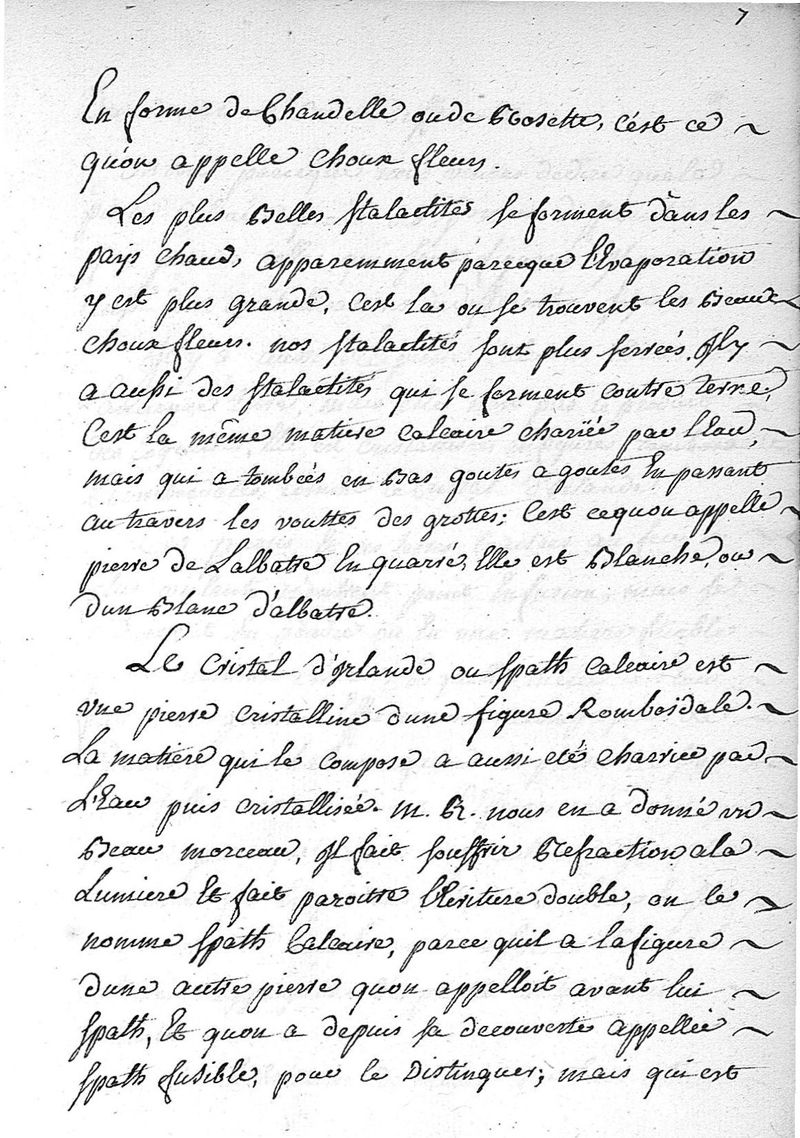 7
En forme de Chandelle ou de Rosette, c'est ce ~
qu'on appelle choux fleurs.
Les plus Belles stalactites se forment dans les ~
pays chaud, apparemment parecque l'Evaporation
y est plus grande, C'est la ou se trouvent les Beaux
choux fleurs. nos stalactités sont plus serreés. Il y ~
a aussi des stalactités qui se forment contre terre;
C'est la même matiere calcaire chariée par l'Eau, ~
mais qui a tombeés en Bas goutes a goutes En passant
au travers les vouttes des grottes; C'est cequon appelle ~
pierre de Lalbatre En quarré, Elle est Blanche, ou ~
dun Blanc d'albatre.
Le Cristal d'Irlande ou spath Calcaire est ~
vne pierre cristalline dune figure Romboïdale. ~
La matiere qui le compose a aussi eté charriee par ~
L'Eau puis cristallisée. M. R. nous en a donné vn ~
Beau morceau, Il fait souffrir Refraction a la ~
Lumiere Et fait paroitre l'Ecriture double, on le ~
nomme spath Calcaire, parce quil a la figure ~
dune autre pierre quon appelloit avant lui ~
spath, Et quon a depuis sa decouverte appelleé ~
spath fusible, pour le Distinguer; mais qui est